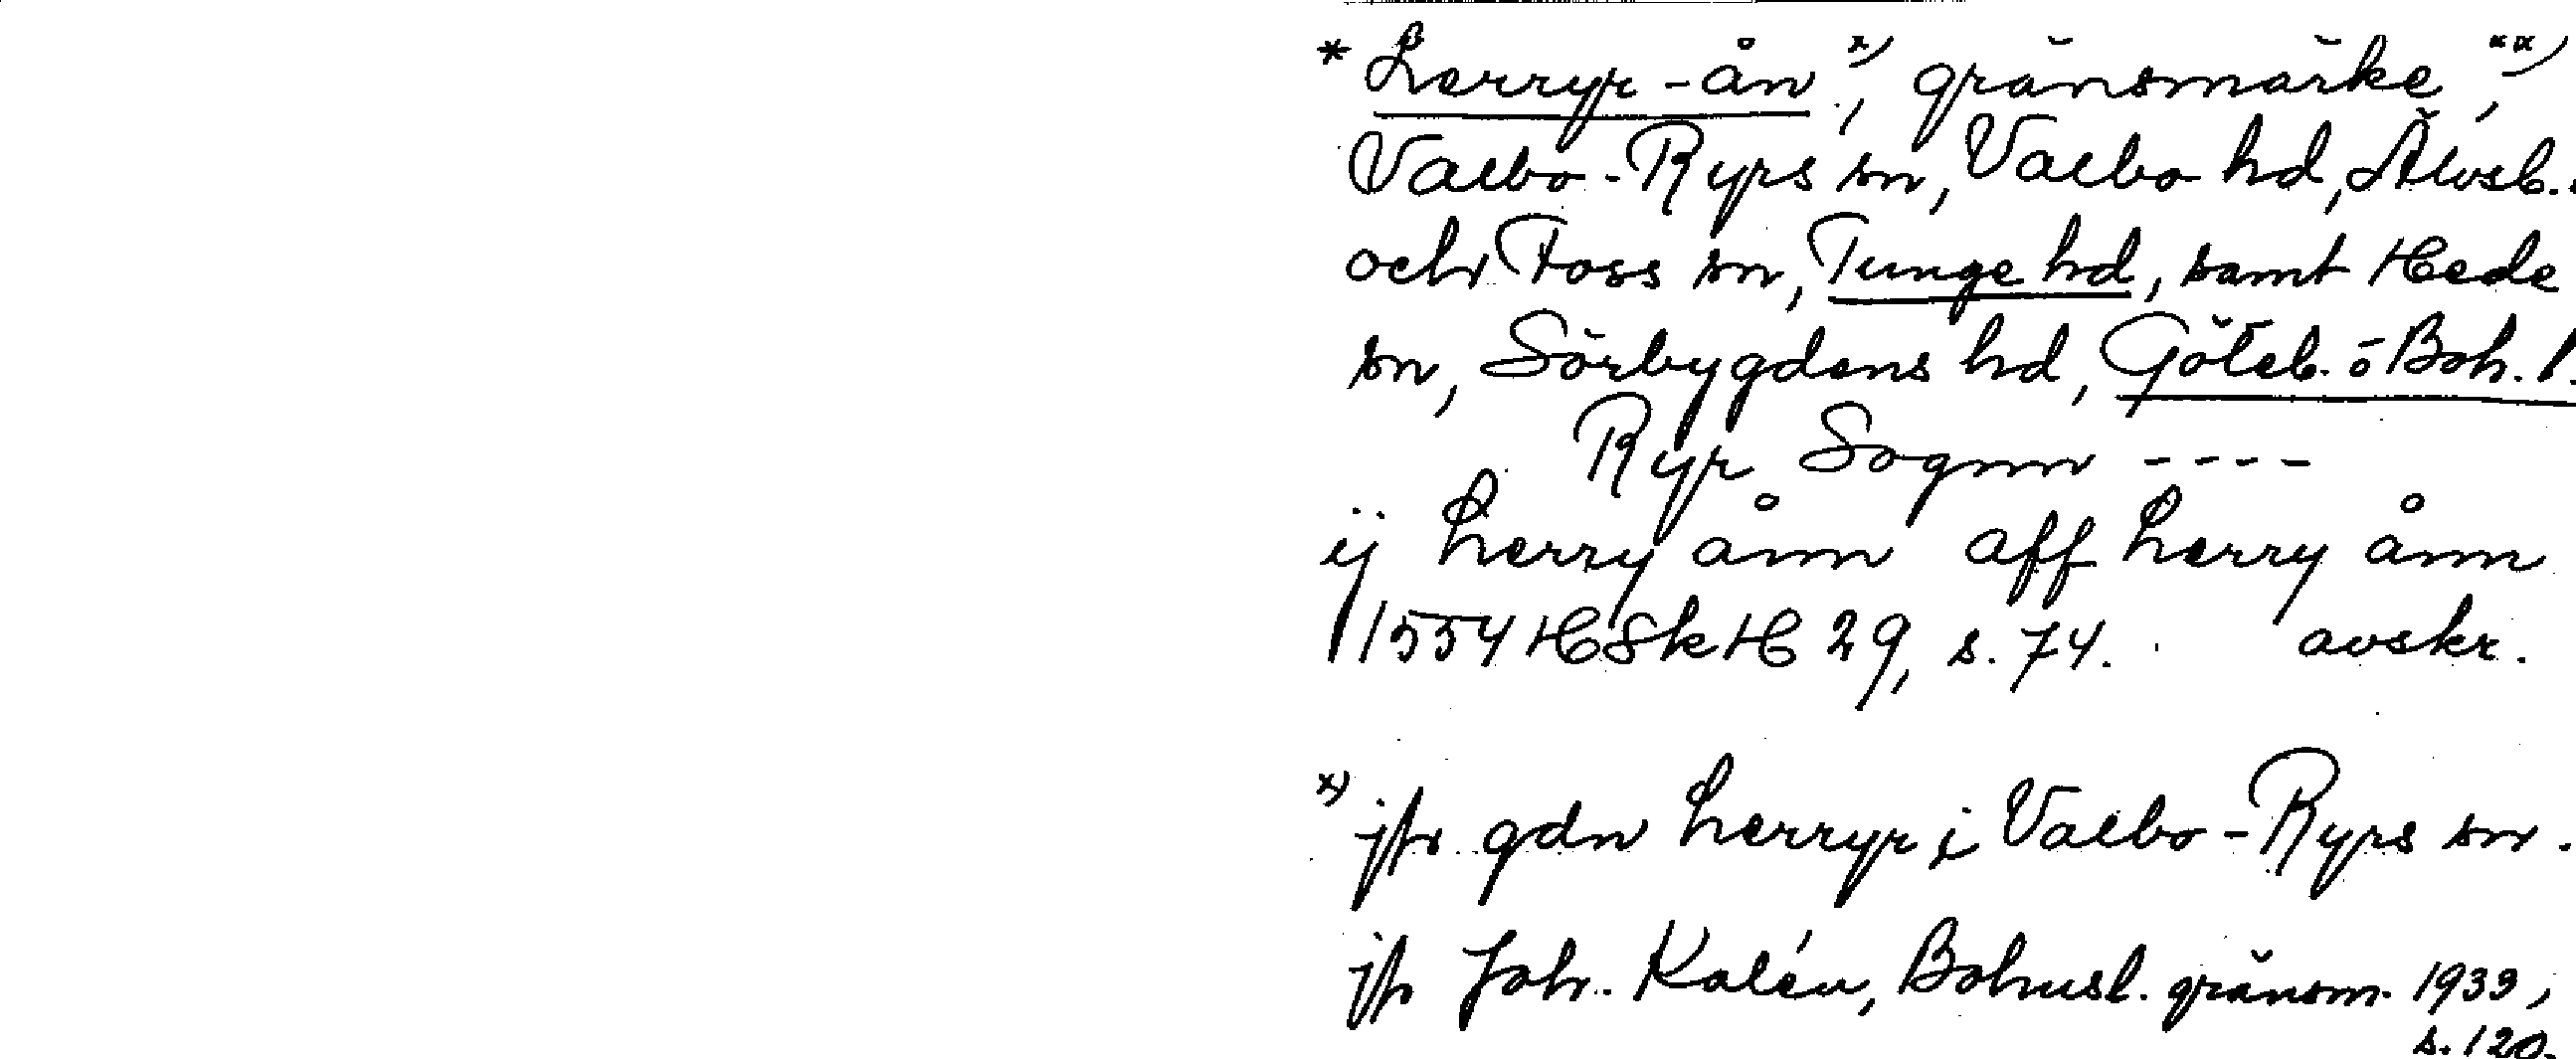 * Lerryr-ån x), gränsmärke, xx)
Valbo-Ryrs sn, Valbo hd, Älvsb.
och Foss sn, Tunge hd, samt Hede
sn, Sörbygdens hd, Göteb. o Boh. l.
Ryr Sognn ----
ij Lerry ånn aff Lerry ånn
1554 HSkH 29, s. 74. avskr.
x) jfr gdn Lerryr i Valbo-Ryrs sn.
jfr Joh. Kalén, Bohusl. gränsm. 1933,
s. 120.